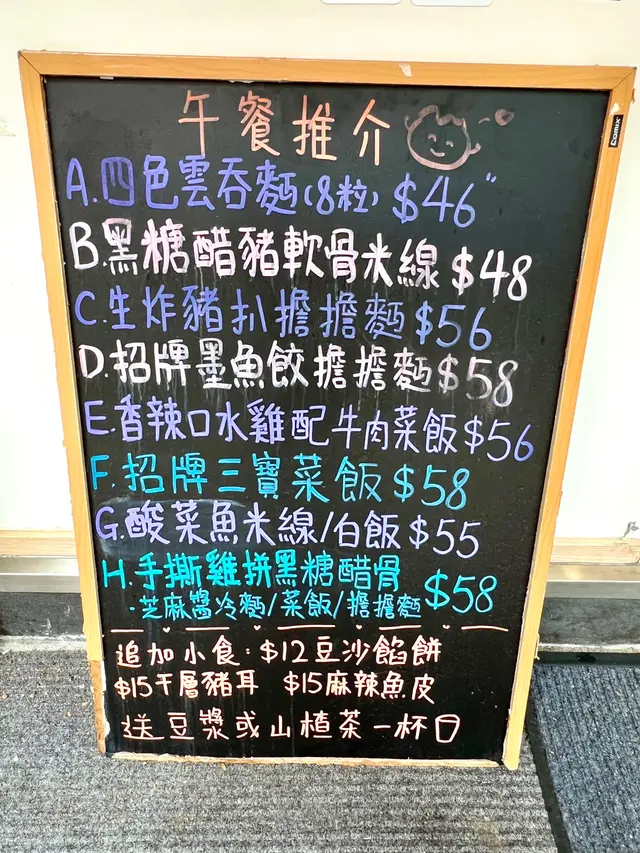 午餐推介
comix
A.四色雲吞麵(8粒) $46"
B.黑糖醋豬軟骨米線 $48
C.生炸豬扒擔擔麵 $56
D.招牌墨魚餃擔擔麵 $58
E.香辣口水雞配牛肉菜飯 $56
F.招牌三寶菜飯 $58
G.酸菜魚米線/白飯 $55
H.手撕雞拼黑糖醋骨 $58
·芝麻醬冷麵/菜飯/擔擔麵
追加小食: $12豆沙餡餅
$15千層豬耳 $15麻辣魚皮
送豆漿或山楂茶一杯